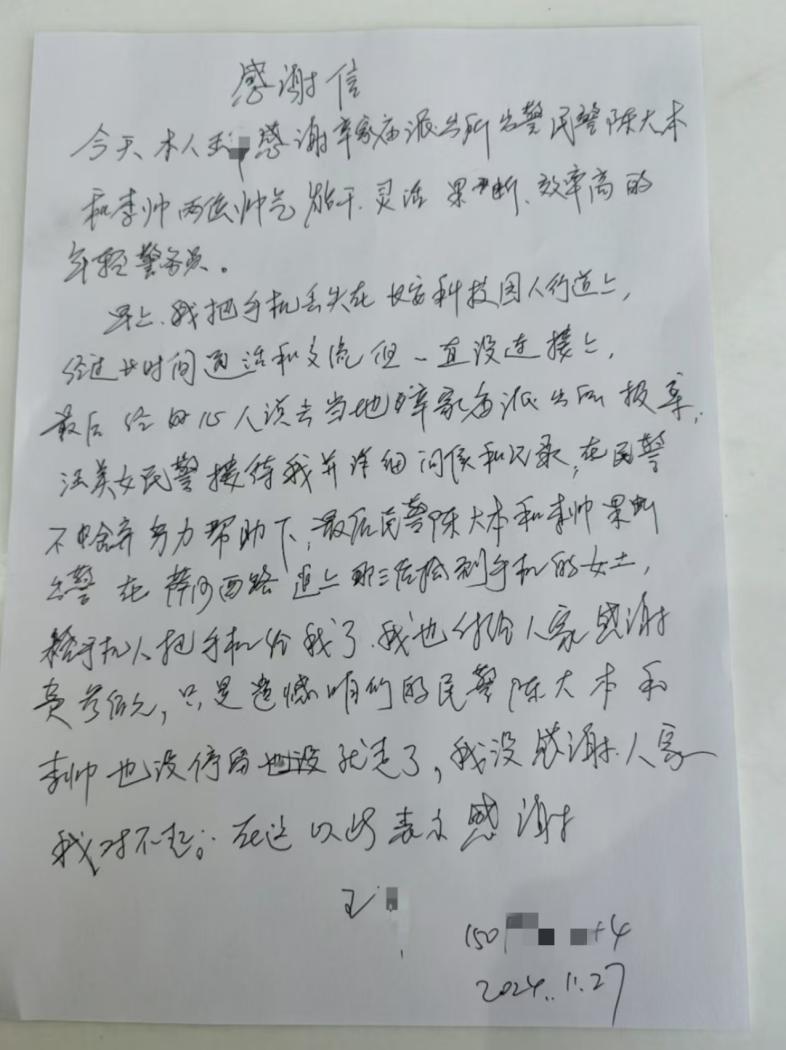 感谢信
今天本人王 感谢辛家庙派出所出警民警陈大本
和李帅两位帅气能干、灵活果断、效率高的
年轻警务员。
早上、我把手机丢失在长安科技园人行道上,
经过长时间通话和交流但一直没连接上,
最后经 人说去当地辛家庙派出所报案,
汪美女民警接待我并详细问候和记录,在民警
不舍弃努力帮助下,最后民警陈大本和李帅果断
出警在 西路追上 捡到手机的女士,
捡手机人把手机给我了、我也付给人家感谢
费 元,只是遗憾咱们的民警陈大本和
李帅也没停留 就走了,我没感谢人家
我对不起。在这以此表示感谢
王
150 4
2024.11.27